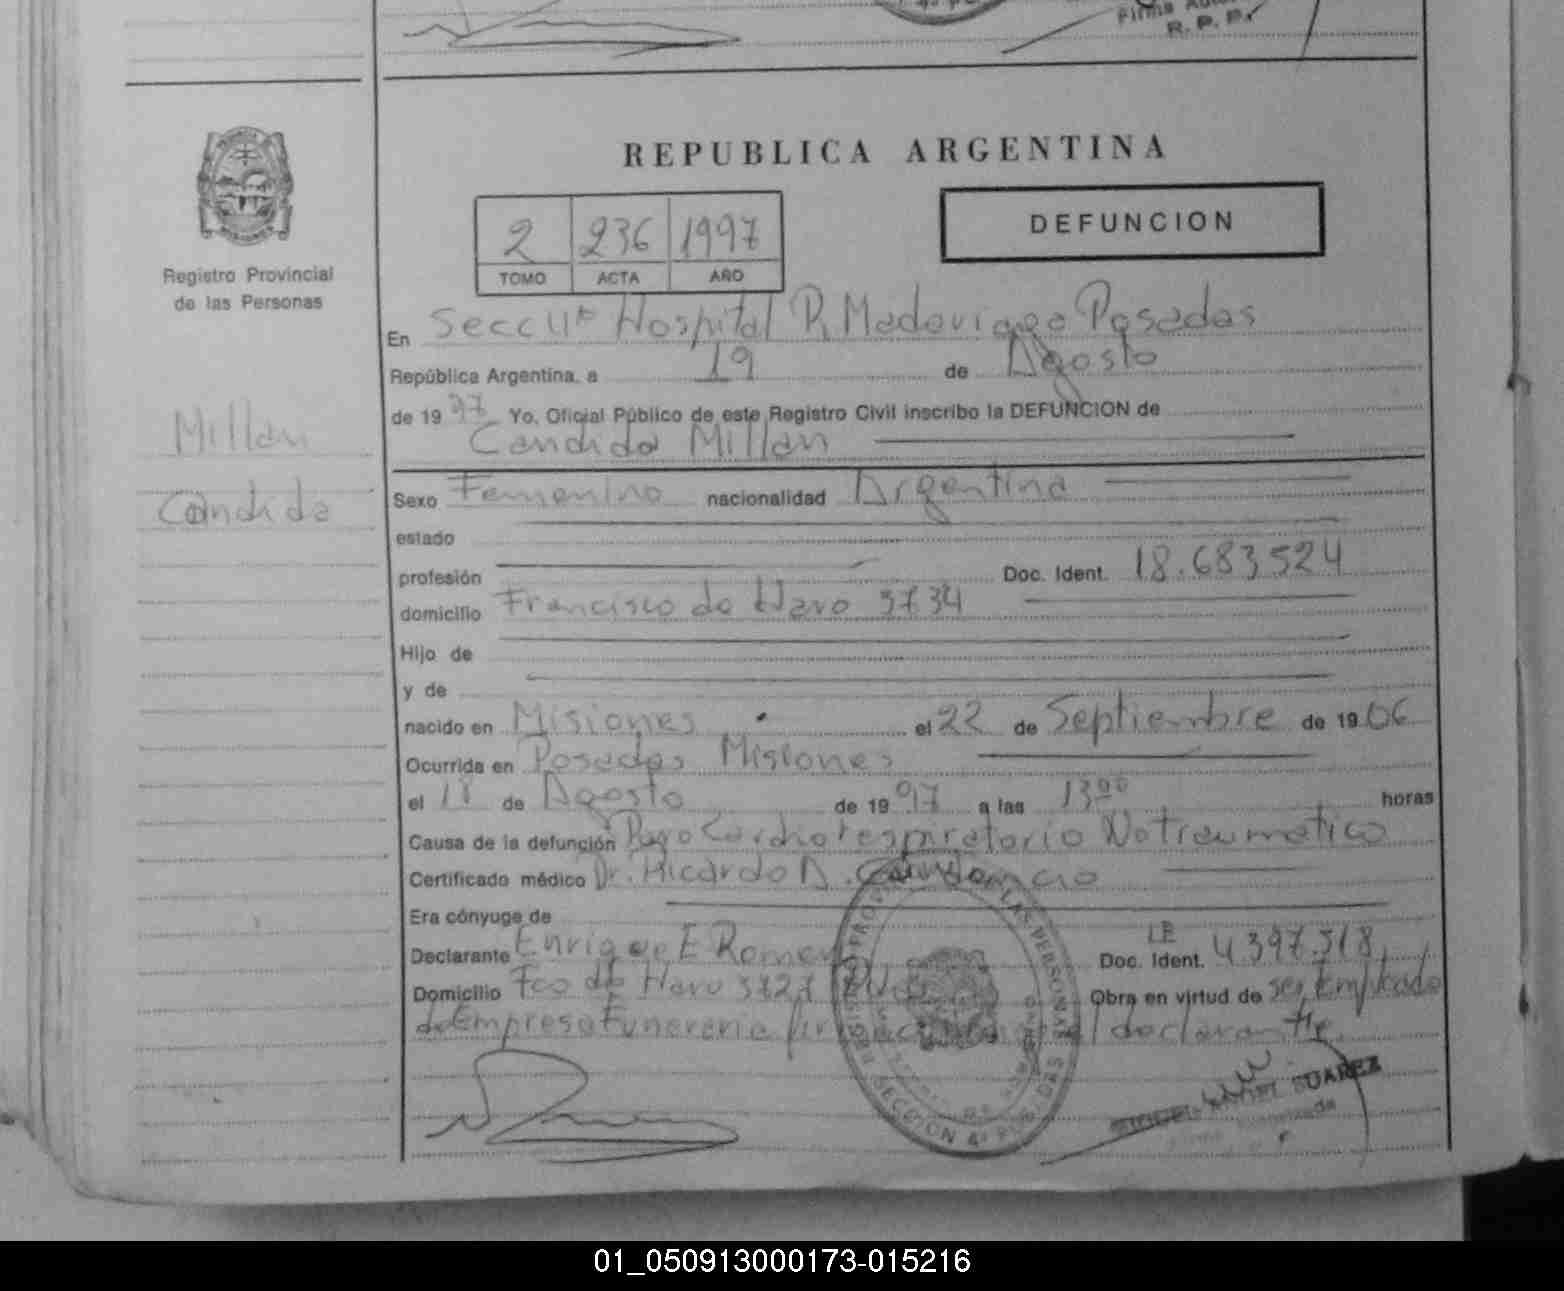 Firma
R. P. P.
Registro Provincial
de las Personas
Millan
Candida
REPUBLICA ARGENTINA
2 236 1997
TOMO ACTA AÑO
DEFUNCION
En Secc 4ta Hospital R. Madariaga Posadas
República Argentina, a 19 de Agosto
de 1997 Yo, Oficial Público de este Registro Civil inscribo la DEFUNCION de
Candida Millan
Sexo Femenino nacionalidad Argentina
estado
profesión Doc. Ident. 18.683.524
domicilio Francisco de Haro 3734
Hijo de
y de
nacido en Misiones el 22 de Septiembre de 1906
Ocurrida en Posadas Misiones
el 18 de Agosto de 1997 a las 13 00 horas
Causa de la defunción Paro Cardiorespiratorio No traumatico
Certificado médico Dr. Ricardo A.
Era cónyuge de
Declarante Enrique E Romero Doc. Ident. LE 4.397.518
Domicilio Fco de Haro 3727 Pdas Obra en virtud de ser Empleado
de Empresa Funeraria el declarante
SUAREZ
SECCION 4ª POSADAS
01_050913000173-015216